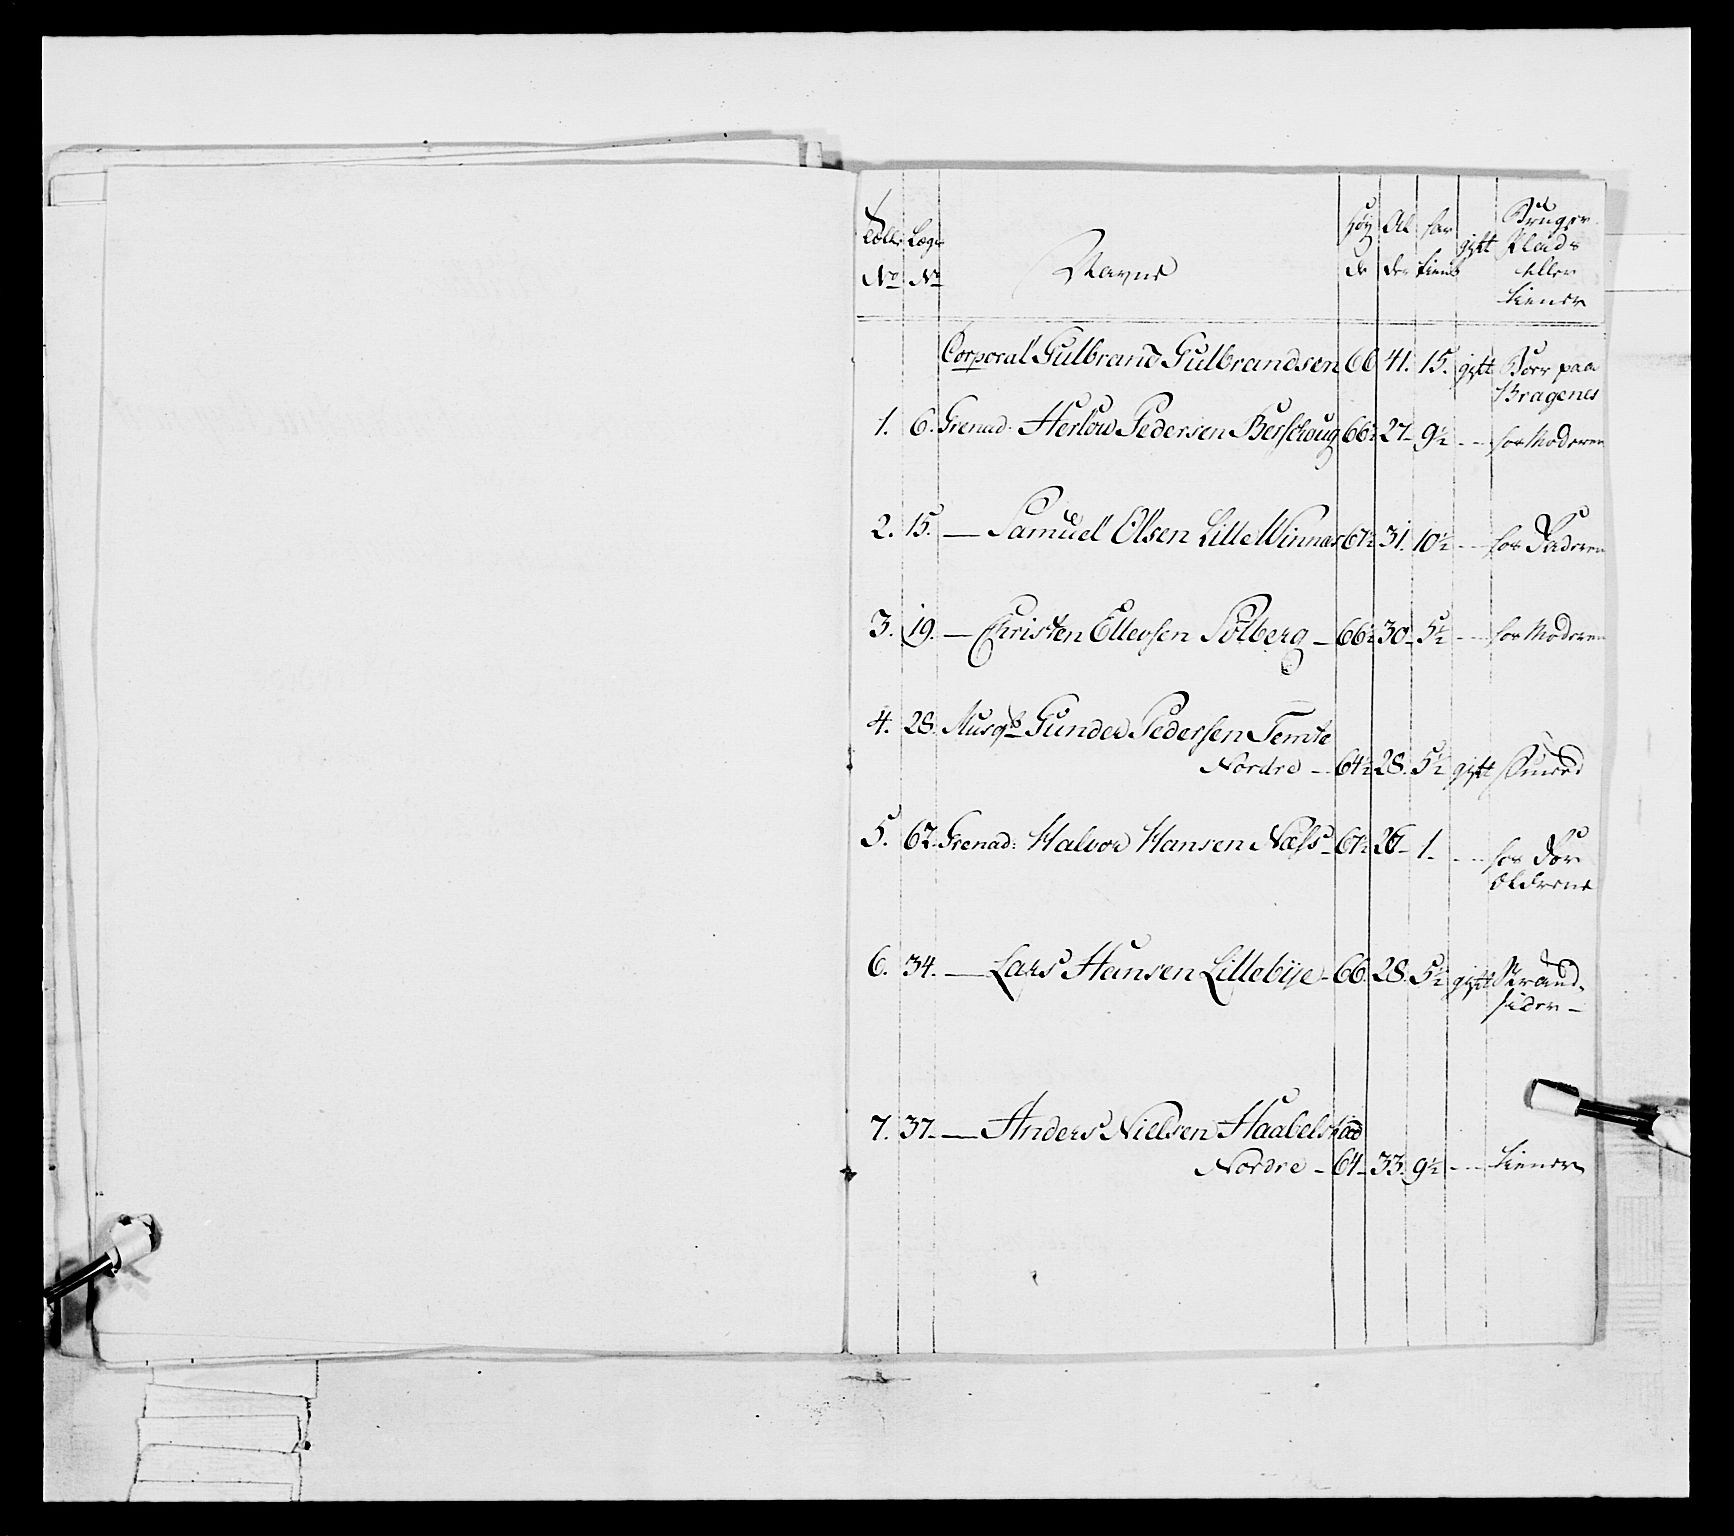 Rolle No Lægs No Navne Høy de Al der har tient gift Bruger Plads eller tiener
Corporal Gulbrand Gulbrandsen 66 41. 15. gift Boer paa Bragenes
1. 6. Grenad. Herlow Pedersen Berschoug 66½ 27 9½ - - for Moderen
2. 15. — Samuel Olsen Lille Winnas 67½ 31. 10½ - - for Faderen
3. 19. — Christen Ellevsen Solberg — 66½ 30 5½ - - for Moderen
4. 28. Musqt Gunder Pedersen Temte
Nordre — 64½ 28. 5½ gift Smed
5. 62. Grenad: Halvor Hansen Næss 67½ 26 1. - - for For
ældrene
6. 34. — Lars Hansen Lillebije 66. 28. 5½ gift Strand-
sider —
7. 37. — Anders Nielsen Haabelstad
Nordre — 64 33. 9½ - - tiener